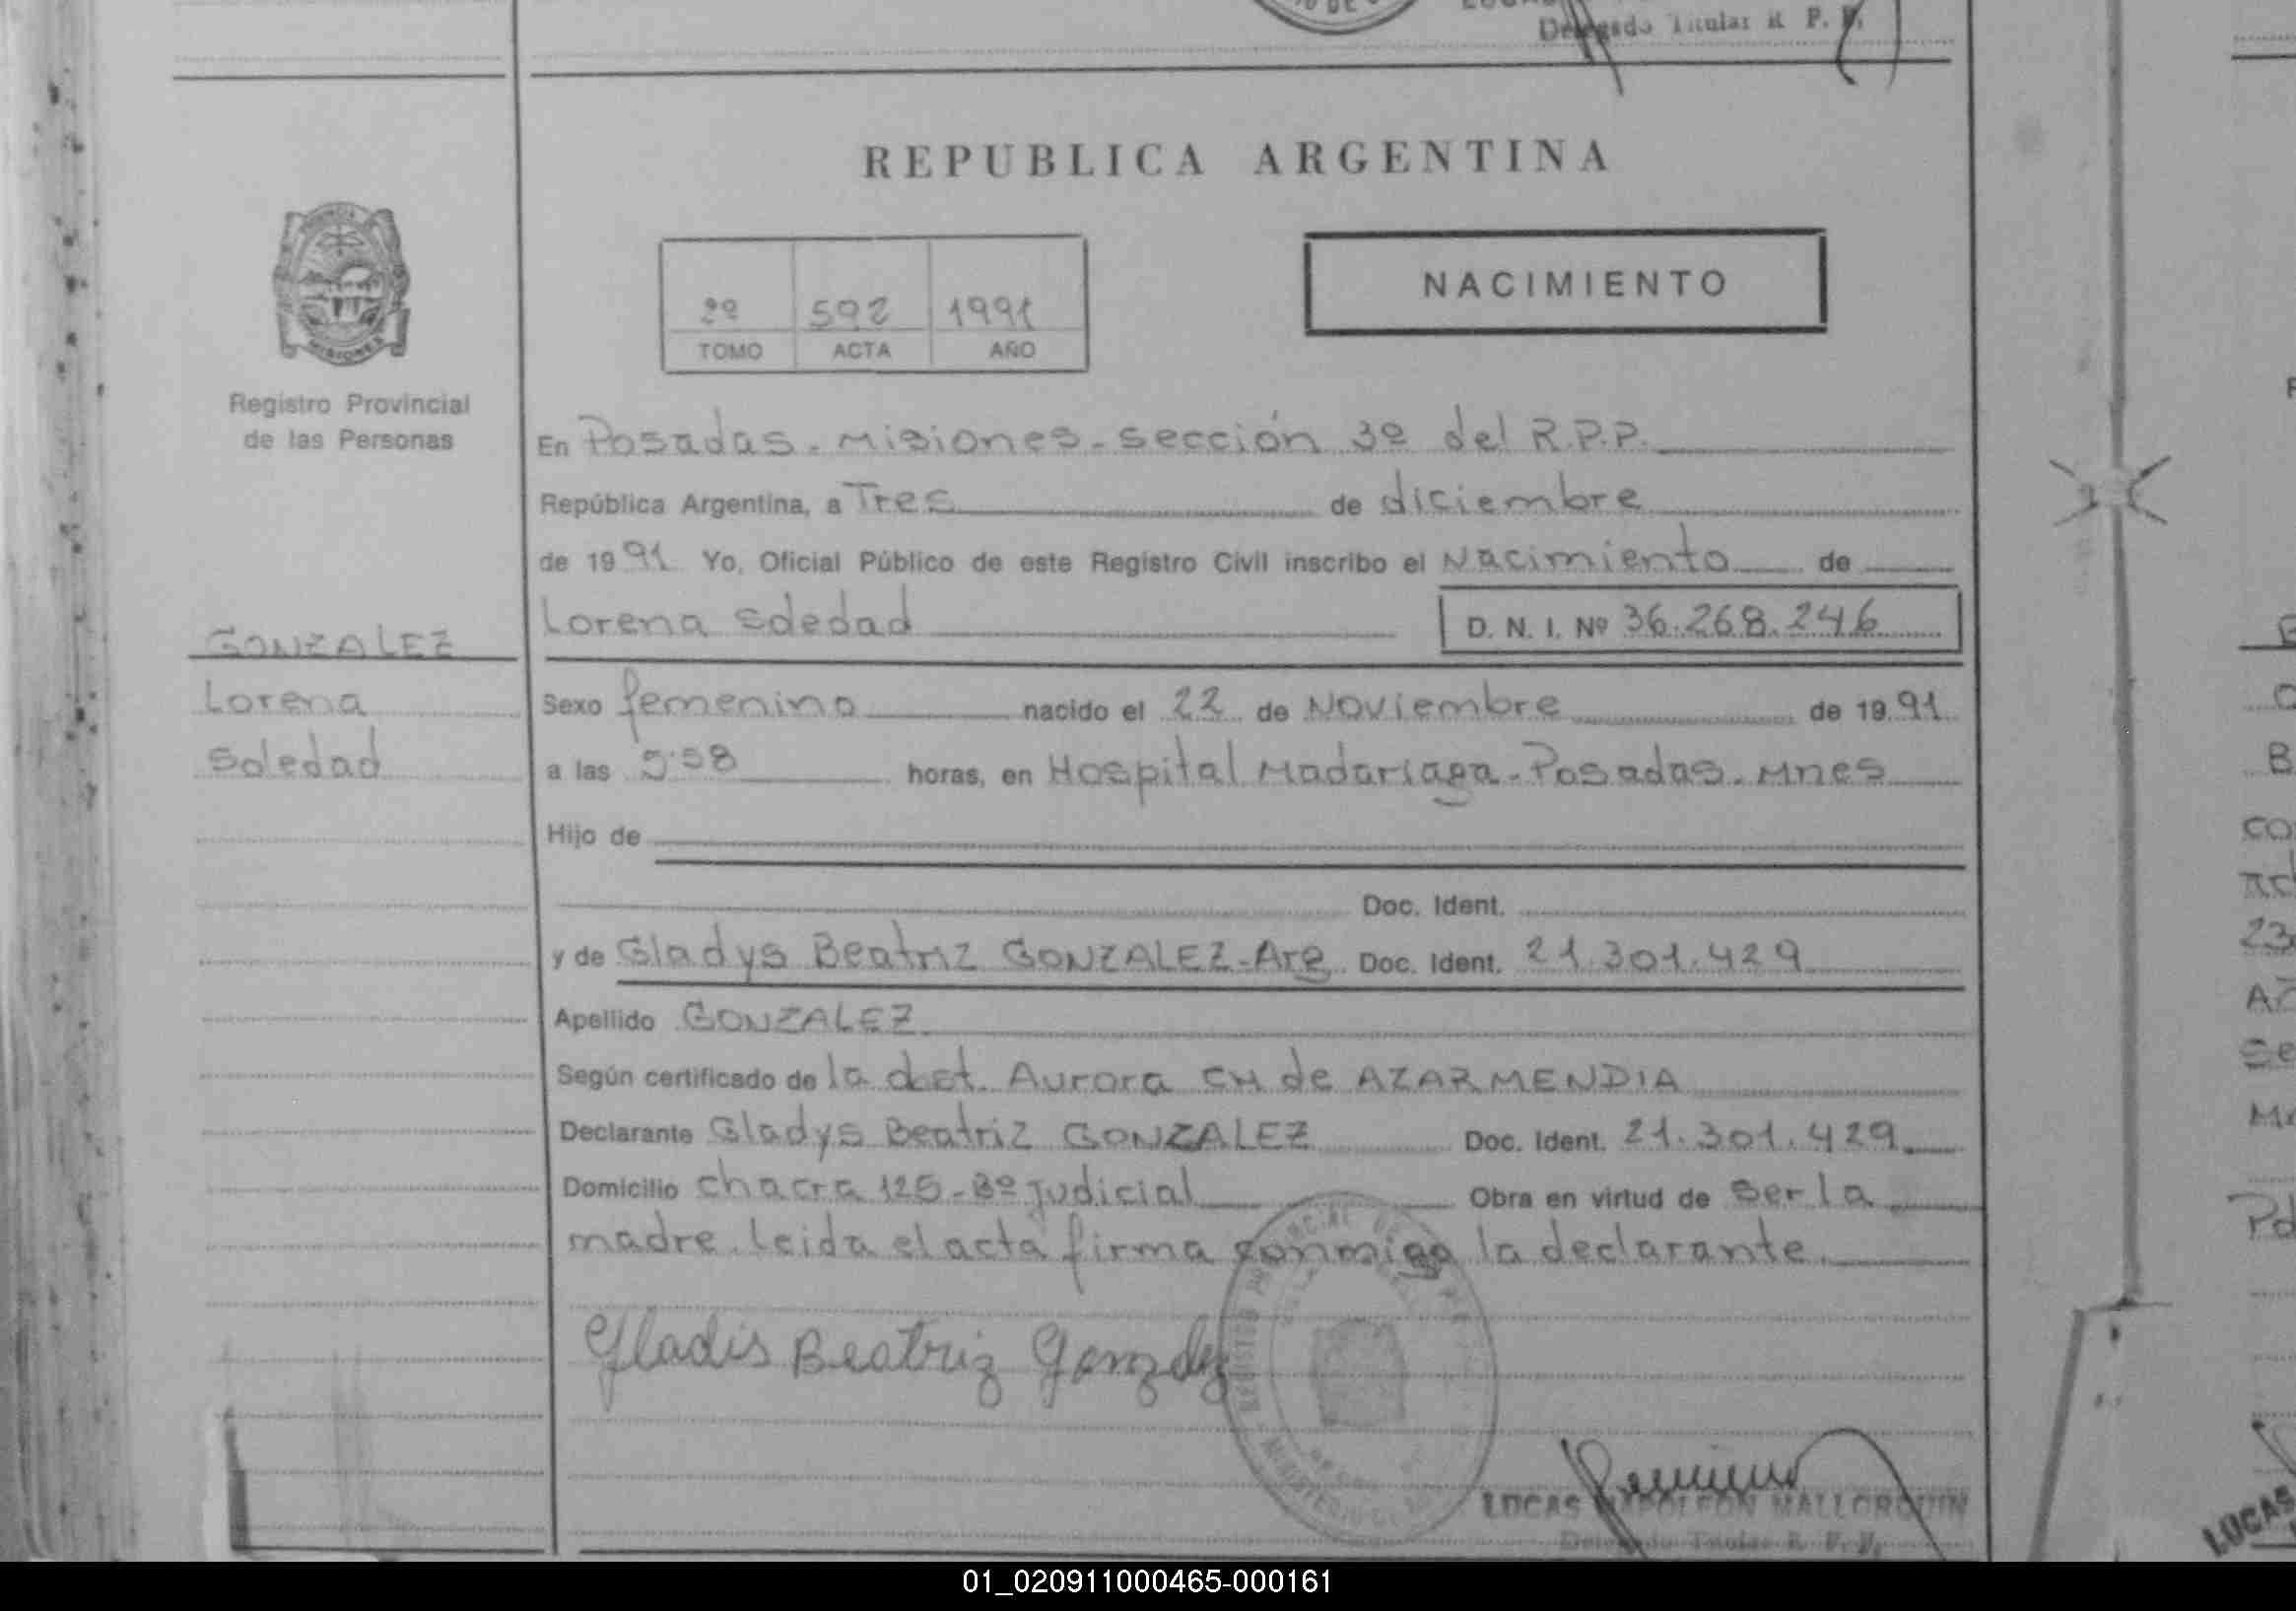 Delegado Titular R. P. P.
REPUBLICA ARGENTINA
2º 592 1991
TOMO ACTA AÑO
NACIMIENTO
MISIONES
Registro Provincial
de las Personas
GONZALEZ
Lorena
Soledad
En Posadas - Misiones - sección 3º del R.P.P.
República Argentina, a Tres de diciembre
de 1991 Yo, Oficial Público de este Registro Civil inscribo el Nacimiento de
Lorena Soledad D. N. I. Nº 36.268.246
Sexo femenino nacido el 22 de Noviembre de 1991
a las 5:58 horas, en Hospital Madariaga - Posadas - Mnes
Hijo de
Doc. Ident.
y de Gladys Beatriz GONZALEZ - Arg. Doc. Ident. 21.301.429
Apellido GONZALEZ
Según certificado de la obst. Aurora CH de AZARMENDIA
Declarante Gladys Beatriz GONZALEZ Doc. Ident. 21.301.429
Domicilio chacra 125 - Bº Judicial Obra en virtud de ser la
madre. Leida el acta firma conmigo la declarante.
Gladis Beatriz Gonzalez
LUCAS NAPOLEON MALLORQUIN
Delegado Titular R. P. P.
LUCAS
01_020911000465-000161